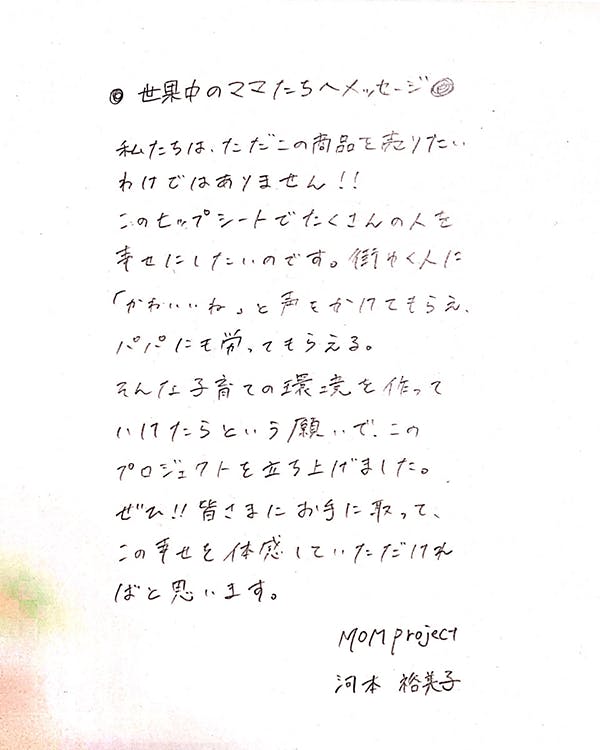 ◎ 世界中のママたちへメッセージ ◎
私たちは、ただこの商品を売りたい
わけではありません!!
このヒップシートでたくさんの人を
幸せにしたいのです。街ゆく人に
「かわいいね」と声をかけてもらえ、
パパにも労ってもらえる。
そんな子育ての環境を作って
いけたらという願いで、この
プロジェクトを立ち上げました。
ぜひ!!皆さまにお手に取って、
この幸せを体感していただけれ
ばと思います。
MOM project
河本 裕美子